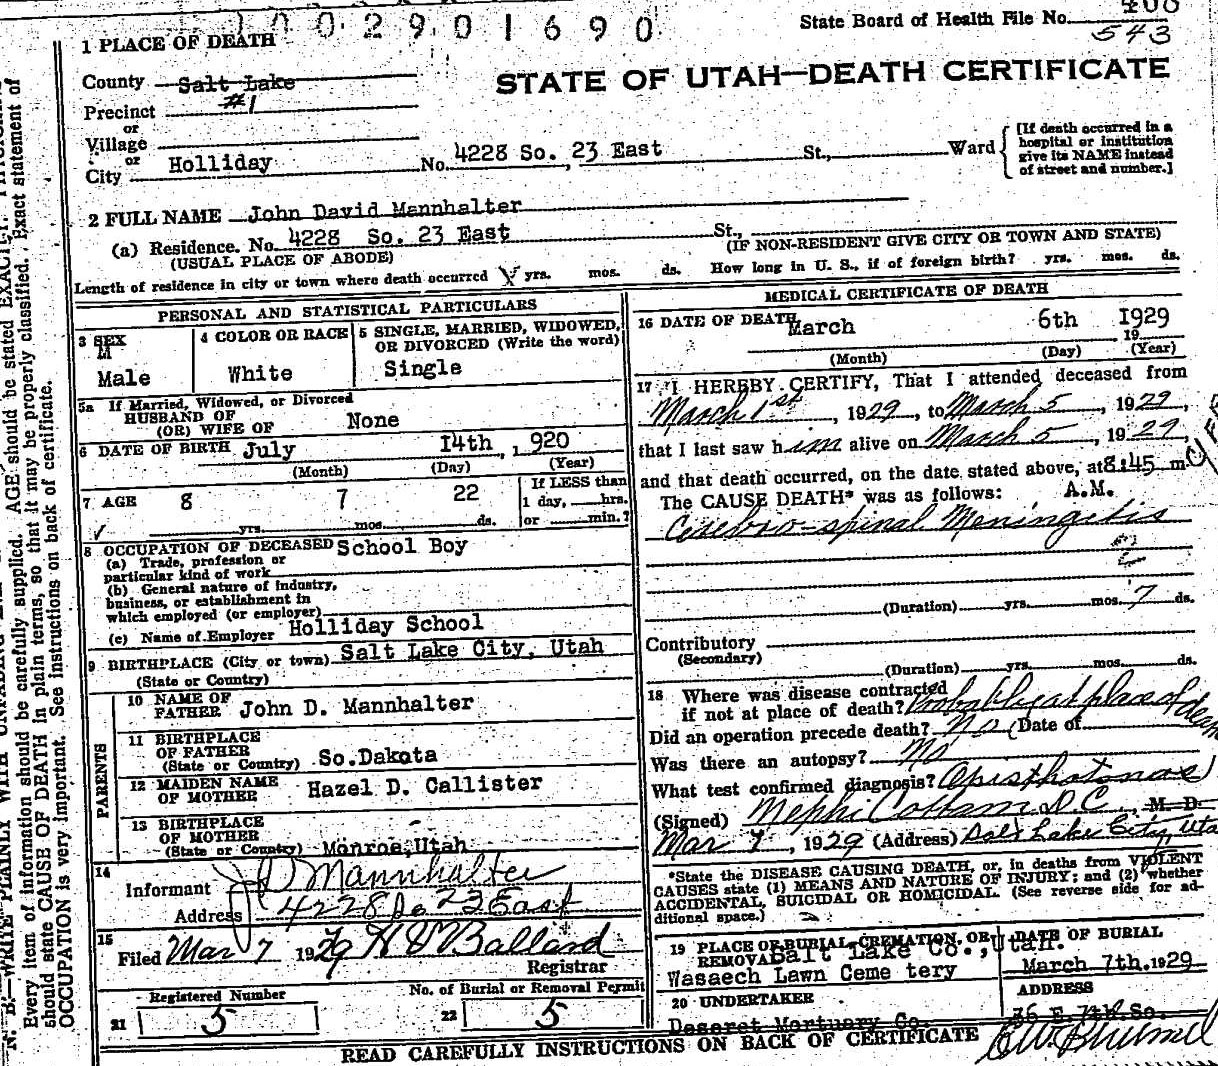 1002901690
State Board of Health File No.
543
1 PLACE OF DEATH
STATE OF UTAH—DEATH CERTIFICATE
County Salt Lake
Precinct #1
or
Village
or
City Holliday No. 4228 So. 23 East St., Ward
[If death occurred in a
hospital or institution
give its NAME instead
of street and number.]
2 FULL NAME John David Mannhalter
(a) Residence. No. 4228 So. 23 East St.,
(USUAL PLACE OF ABODE) (IF NON-RESIDENT GIVE CITY OR TOWN AND STATE)
Length of residence in city or town where death occurred yrs. mos. ds. How long in U. S., if of foreign birth? yrs. mos. ds.
PERSONAL AND STATISTICAL PARTICULARS
3 SEX
M
Male
4 COLOR OR RACE
White
5 SINGLE, MARRIED, WIDOWED,
OR DIVORCED (Write the word)
Single
5a If Married, Widowed, or Divorced
HUSBAND OF
(OR) WIFE OF None
6 DATE OF BIRTH July 14th, 1920
(Month) (Day) (Year)
7 AGE 8 7 22
yrs. mos. ds.
If LESS than
1 day, hrs.
or min.?
8 OCCUPATION OF DECEASED School Boy
(a) Trade, profession or
particular kind of work
(b) General nature of industry,
business, or establishment in
which employed (or employer)
(c) Name of Employer Holliday School
9 BIRTHPLACE (City or town) Salt Lake City, Utah
(State or Country)
PARENTS
10 NAME OF
FATHER John D. Mannhalter
11 BIRTHPLACE
OF FATHER
(State or Country) So.Dakota
12 MAIDEN NAME
OF MOTHER Hazel D. Callister
13 BIRTHPLACE
OF MOTHER
(State or Country) Monroe, Utah
14
Informant J D Mannhalter
Address 4228 So 23 East
15
Filed Mar 7 1929 H D Ballard
Registrar
Registered Number
21 5
No. of Burial or Removal Permit
22 5
MEDICAL CERTIFICATE OF DEATH
16 DATE OF DEATH March 6th 1929
19
(Month) (Day) (Year)
17 I HEREBY CERTIFY, That I attended deceased from
March 1st, 1929, to March 5, 1929,
that I last saw him alive on March 5, 1929
and that death occurred, on the date stated above, at 8:45 m
The CAUSE DEATH* was as follows: A.M.
Cerebro-spinal Meningetis
(Duration) yrs. mos. 7 ds.
Contributory
(Secondary)
(Duration) yrs. mos. ds.
18 Where was disease contracted
if not at place of death? Probably at place of
Did an operation precede death? No (Date of
Was there an autopsy? No
What test confirmed diagnosis? Opisthotonas
(Signed) Nephi Cottam D.C., M. D.
Mar 7, 1929 (Address) Salt Lake City, Uta
*State the DISEASE CAUSING DEATH, or, in deaths from VIOLENT
CAUSES state (1) MEANS AND NATURE OF INJURY; and (2) whether
ACCIDENTAL, SUICIDAL OR HOMICIDAL. (See reverse side for ad-
ditional space.)
19 PLACE OF BURIAL, CREMATION, OR
REMOVAL Salt Lake Co., Utah.
Wasaech Lawn Ceme tery
DATE OF BURIAL
March 7th. 1929
20 UNDERTAKER
Deseret Mortuary Co.
ADDRESS
36 E. 7th. So.
READ CAREFULLY INSTRUCTIONS ON BACK OF CERTIFICATE
N. B.—WRITE PLAINLY WITH UNFADING
Every item of information should be carefully supplied. AGE should be stated EXACTLY.
should state CAUSE OF DEATH in plain terms, so that it may be properly classified. Exact statement of
OCCUPATION is very important. See instructions on back of certificate.